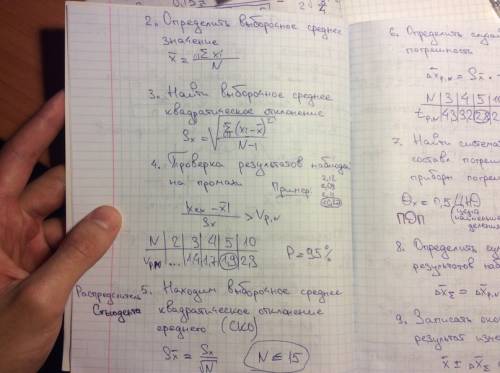 2. Определить выборочное среднее
значение
x̄ = Σxi / N
3. Найти выборочное среднее
квадратическое отклонение
Sx = √(Σ(xi - x̄)² / N-1)
4. Проверка результатов наблюд.
на промахи
Пример:
|xвх - x̄| / Sx > Vp,N
N 2 3 4 5 10
Vp,N ... 1,4 1,7 1,9 2,3
P = 95%
Распределитель
Стьюдента
5. Находим выборочное среднее
квадратическое отклонение
среднего (СКО)
Sx̄ = Sx / √N
N ≤ 15
6. Определить
погрешность
Δxp,N = Sx̄
N 3 4 5 10
tp,N 4,3 3,2 2,8
7. Найти
состав
прибор
Θx = 0,5/
ПОП
цена
8. Определить
результатов
ΔxΣ =
9. Записать
результат
x̄ ± ΔxΣ =